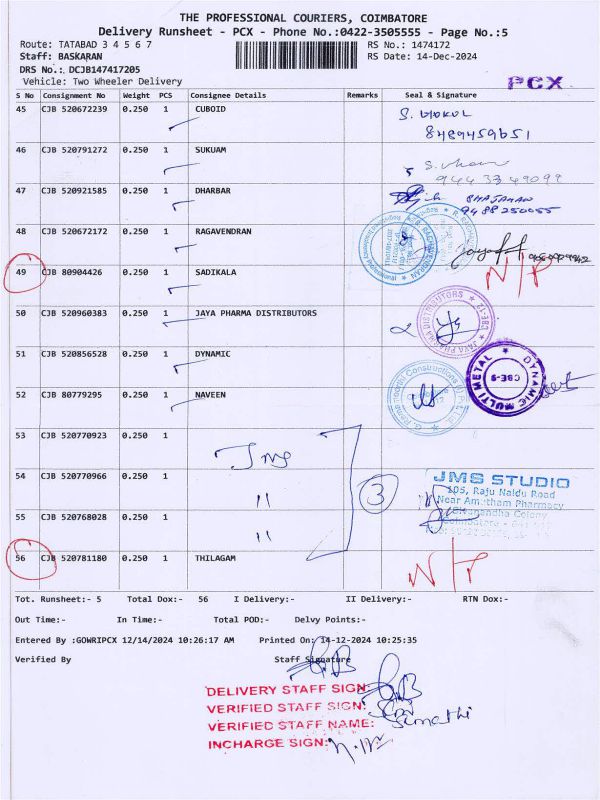 THE PROFESSIONAL COURIERS, COIMBATORE
Delivery Runsheet - PCX - Phone No.:0422-3505555 - Page No.:5
Route: TATABAD 3 4 5 6 7 RS No.: 1474172
Staff: BASKARAN RS Date: 14-Dec-2024
DRS No.: DCJB147417205
Vehicle: Two Wheeler Delivery
PCX
S No Consignment No Weight PCS Consignee Details Remarks Seal & Signature
45 CJB 520672239 0.250 1 CUBOID
8489459651
46 CJB 520791272 0.250 1 SUKUAM
9443349099
47 CJB 520921585 0.250 1 DHARBAR
9488250055
48 CJB 520672172 0.250 1 RAGAVENDRAN
49 CJB 80904426 0.250 1 SADIKALA N/P
50 CJB 520960383 0.250 1 JAYA PHARMA DISTRIBUTORS
JAYA PHARMA DISTRIBUTORS CBE-12
51 CJB 520856528 0.250 1 DYNAMIC
DYNAMIC MULTIMETAL CBE-9
52 CJB 80779295 0.250 1 NAVEEN
53 CJB 520770923 0.250 1 Jms
54 CJB 520770966 0.250 1 "
3
JMS STUDIO
105, Raju Naidu Road
Near Amutham Pharmacy
55 CJB 520768028 0.250 1 "
56 CJB 520781180 0.250 1 THILAGAM N/P
Tot. Runsheet:- 5 Total Dox:- 56 I Delivery:- II Delivery:- RTN Dox:-
Out Time:- In Time:- Total POD:- Delvy Points:-
Entered By :GOWRIPCX 12/14/2024 10:26:17 AM Printed On: 14-12-2024 10:25:35
Verified By Staff Signature
DELIVERY STAFF SIGN:
VERIFIED STAFF SIGN:
VERIFIED STAFF NAME: Sumathi
INCHARGE SIGN: